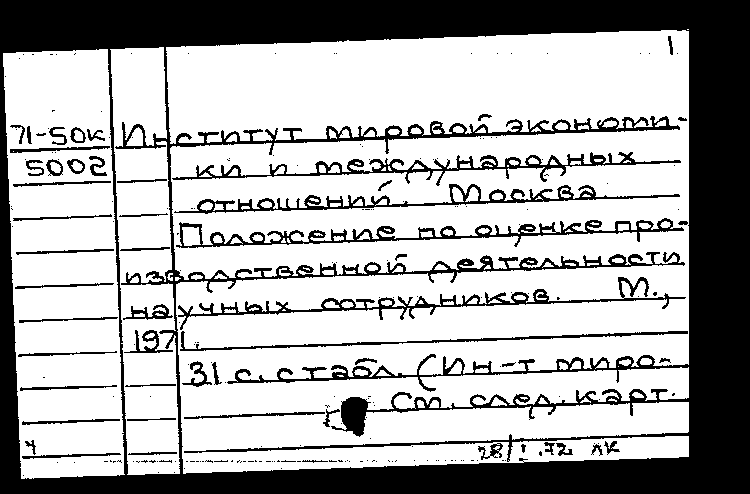 1
71-50к Институт мировой экономи-
5002 ки и международных
отношений. Москва.
Положение по оценке про-
изводственной деятельности
научных сотрудников. М.,
1971.
31 с. с табл. (Ин-т миро-
См. след. карт.
ч 28/I.72 ЛК